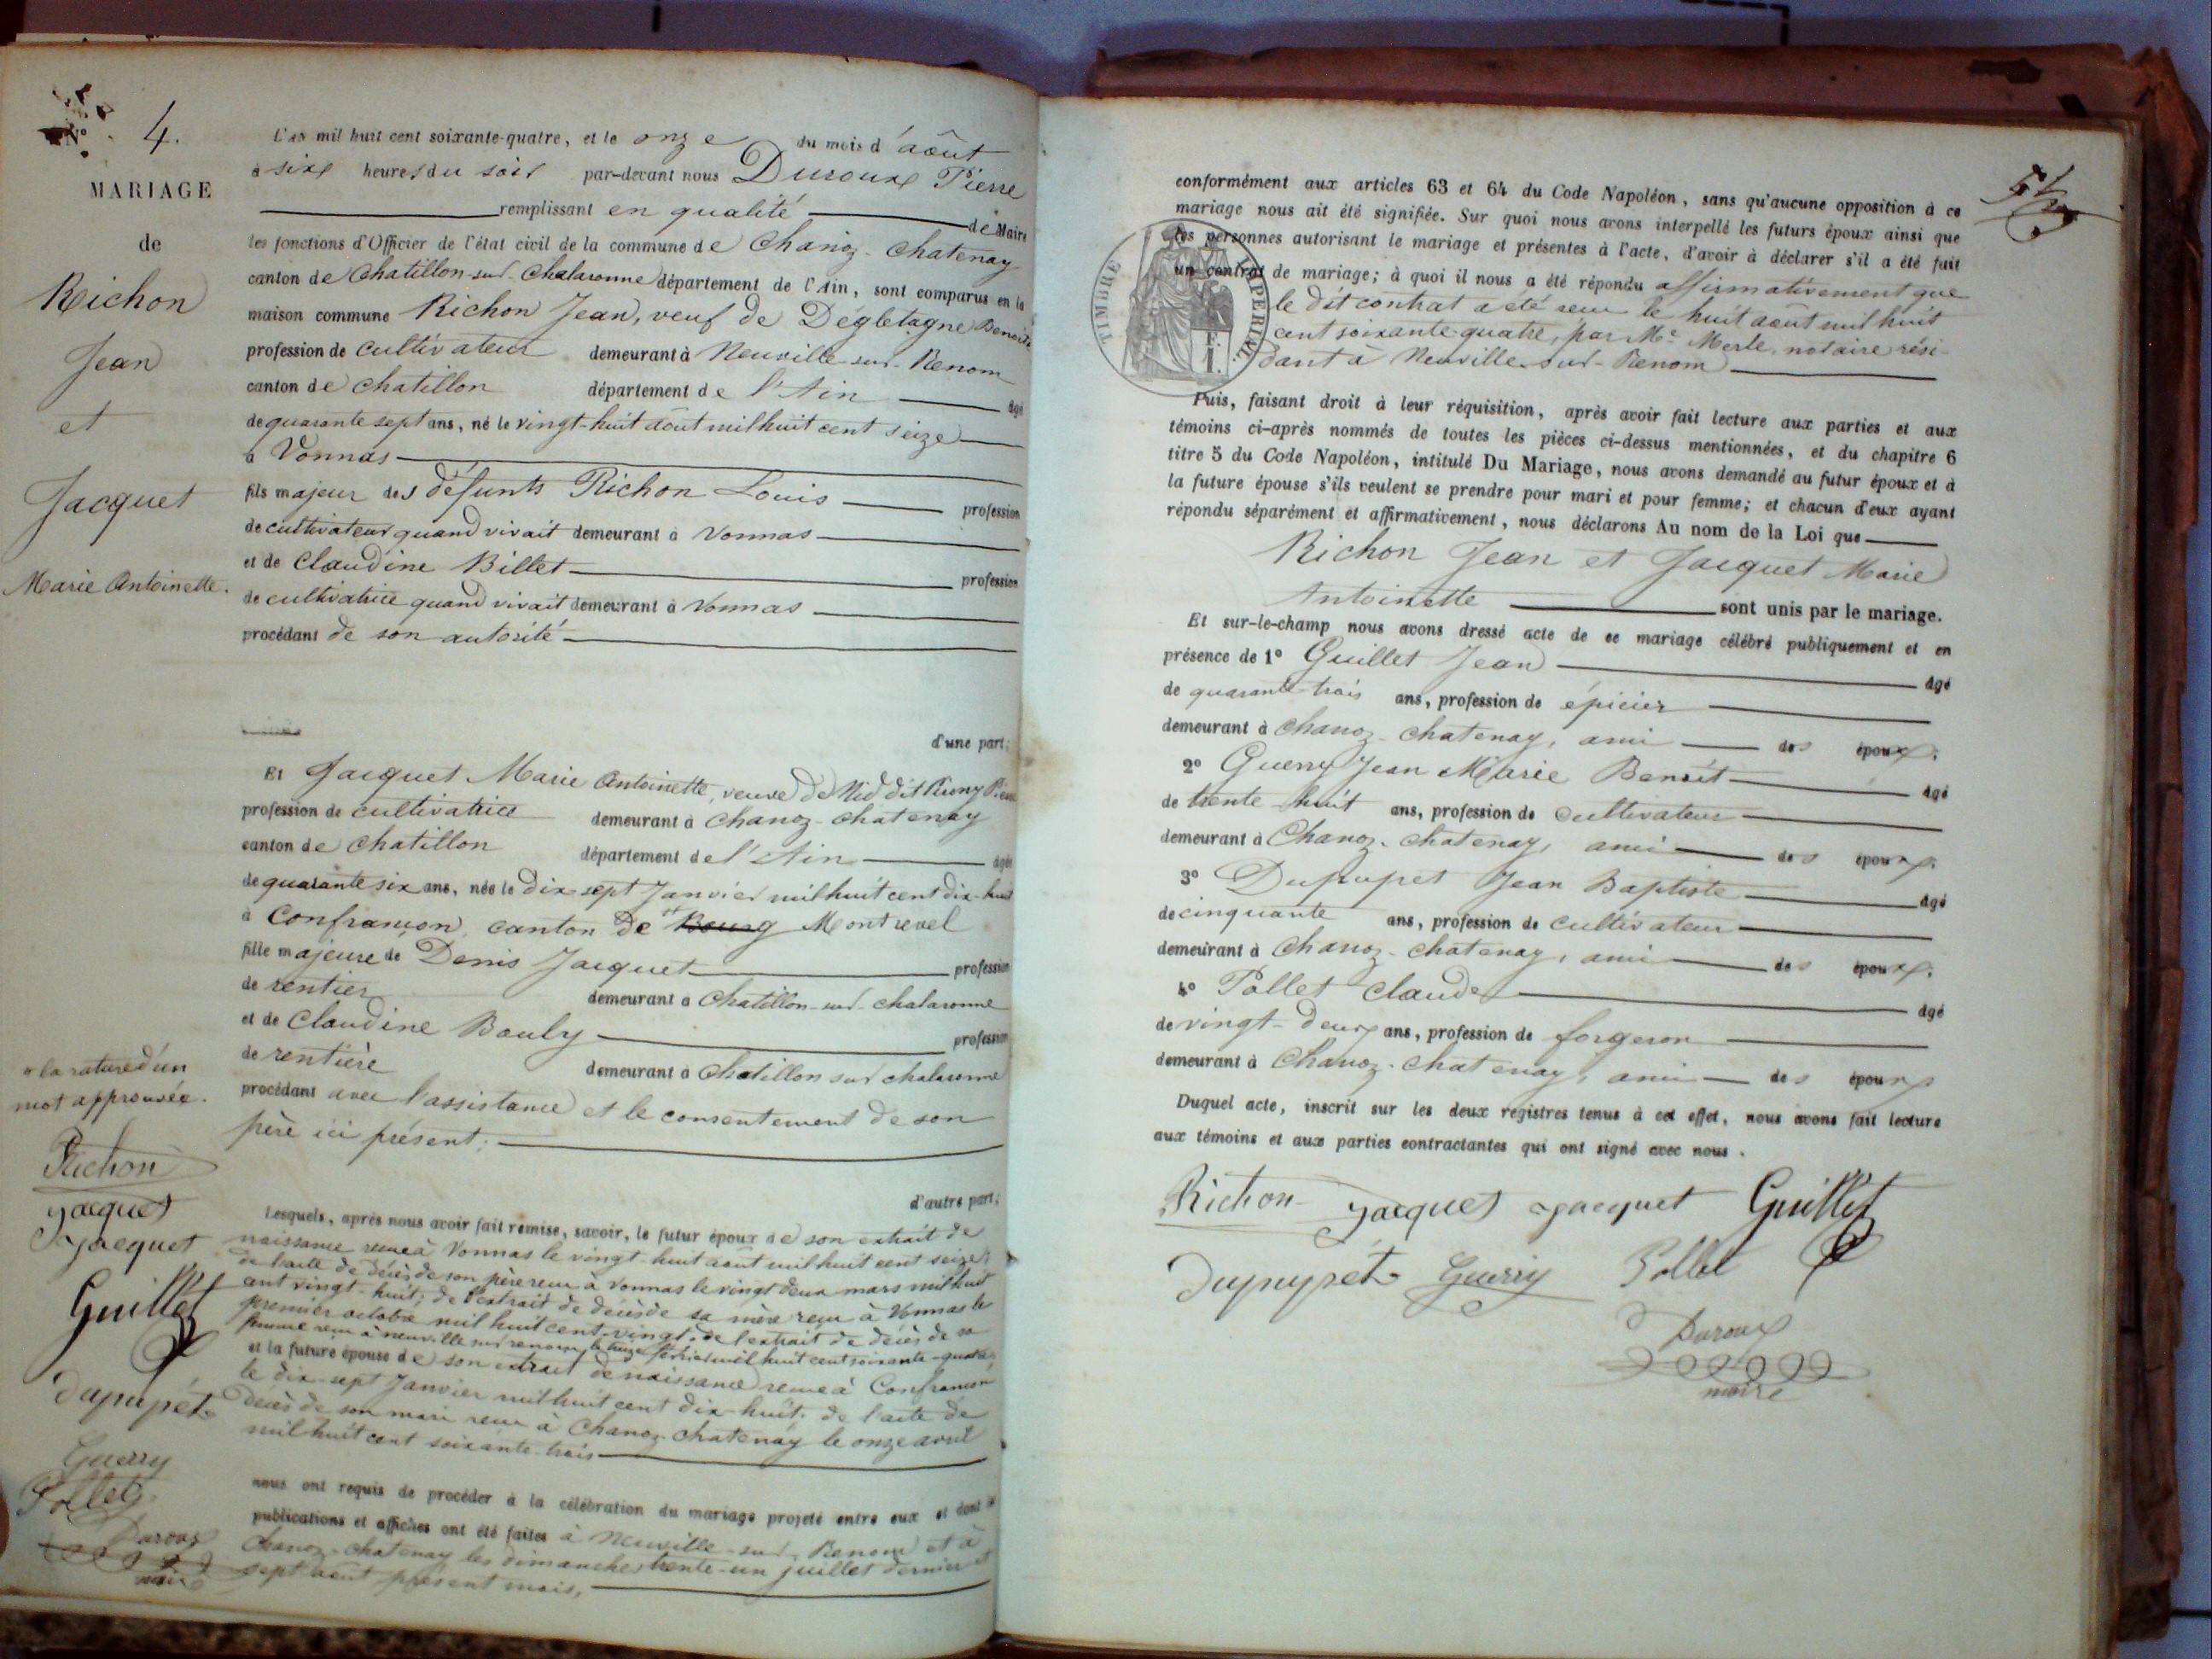 N° 4.
MARIAGE
de
Richon
Jean
et
Jacquet
Marie Antoinette.
L'an mil huit cent soixante-quatre, et le onze du mois d'août
à six heures du soir par-devant nous Duroux Pierre
remplissant en qualité de Maire
les fonctions d'Officier de l'état civil de la commune de Chanoz-Chatenay
canton de Chatillon-sur-Chalaronne département de l'Ain, sont comparus en la
maison commune Richon Jean, veuf de Dégletagne Benoite
profession de cultivateur demeurant à Neuville-sur-Renom
canton de chatillon département de l'Ain âgé
de quarante sept ans, né le vingt-huit août mil huit cent seize
à Vonnas
fils majeur des défunts Richon Louis profession
de cultivateur quand vivait demeurant à Vonnas
et de Claudine Billet profession
de cultivatrice quand vivait demeurant à Vonnas
procédant de son autorité
d'une part;
Et Jacquet Marie Antoinette, veuve de Nid dit Rony
profession de cultivatrice demeurant à Chanoz-Chatenay
canton de chatillon département de l'Ain âgée
de quarante six ans, née le dix sept Janvier mil huit cent dix-huit
à Confrançon, canton de Bourg Montrevel
fille majeure de Denis Jacquet profession
de rentier demeurant à Chatillon-sur-chalaronne
et de Claudine Bouly profession
de rentière demeurant à Chatillon sur chalaronne
procédant avec l'assistance et le consentement de son
père ici présent.
d'autre part;
la rature d'un
mot approuvée.
Richon
Jacquet
Jacquet
Guillet
Dupupet
Guerry
Pollet
Duroux
maire
Lesquels, après nous avoir fait remise, savoir, le futur époux de son extrait de
naissance reçu à Vonnas le vingt-huit août mil huit cent seize;
de l'acte de décès de son père reçu à Vonnas le vingt deux mars mil huit
cent vingt-huit; de l'extrait de décès de sa mère reçu à Vonnas le
premier octobre mil huit cent vingt; de l'extrait de décès de sa
femme reçu à neuville sur renom, le février mil huit cent soixante-quatre;
et la future épouse de son extrait de naissance reçu à Confrançon
le dix-sept Janvier mil huit cent dix-huit; de l'acte de
décès de son mari reçu à Chanoz-Chatenay le onze avril
mil huit cent soixante-trois
nous ont requis de procéder à la célébration du mariage projeté entre eux et dont les
publications et affiches ont été faites à Neuville-sur-Renom et à
Chanoz-Chatenay les dimanches trente-un juillet dernier et
sept août présent mois,
conformément aux articles 63 et 64 du Code Napoléon, sans qu'aucune opposition à ce
mariage nous ait été signifiée. Sur quoi nous avons interpellé les futurs époux ainsi que
les personnes autorisant le mariage et présentes à l'acte, d'avoir à déclarer s'il a été fait
un contrat de mariage; à quoi il nous a été répondu affirmativement que
le dit contrat a été reçu le huit août mil huit
cent soixante-quatre, par Me Merle, notaire rési-
dant à Neuville-sur-Renom
TIMBRE IMPERIAL
F.
1.
Puis, faisant droit à leur réquisition, après avoir fait lecture aux parties et aux
témoins ci-après nommés de toutes les pièces ci-dessus mentionnées, et du chapitre 6
titre 5 du Code Napoléon, intitulé Du Mariage, nous avons demandé au futur époux et à
la future épouse s'ils veulent se prendre pour mari et pour femme; et chacun d'eux ayant
répondu séparément et affirmativement, nous déclarons Au nom de la Loi que
Richon Jean et Jacquet Marie
Antoinette sont unis par le mariage.
Et sur-le-champ nous avons dressé acte de ce mariage célébré publiquement et en
présence de 1° Guillet Jean âgé
de quarante trois ans, profession de épicier
demeurant à Chanoz-Chatenay, ami des époux.
2° Guerry Jean Marie Benoit âgé
de trente-huit ans, profession de cultivateur
demeurant à Chanoz-Chatenay, ami des époux.
3° Dupupet Jean Baptiste âgé
de cinquante ans, profession de cultivateur
demeurant à Chanoz-Chatenay, ami des époux.
4° Pollet Claude âgé
de vingt-deux ans, profession de forgeron
demeurant à Chanoz-Chatenay, ami des époux
Duquel acte, inscrit sur les deux registres tenus à cet effet, nous avons fait lecture
aux témoins et aux parties contractantes qui ont signé avec nous.
Richon Jacquet Jacquet Guillet
Dupupet Guerry Pollet
Duroux
maire